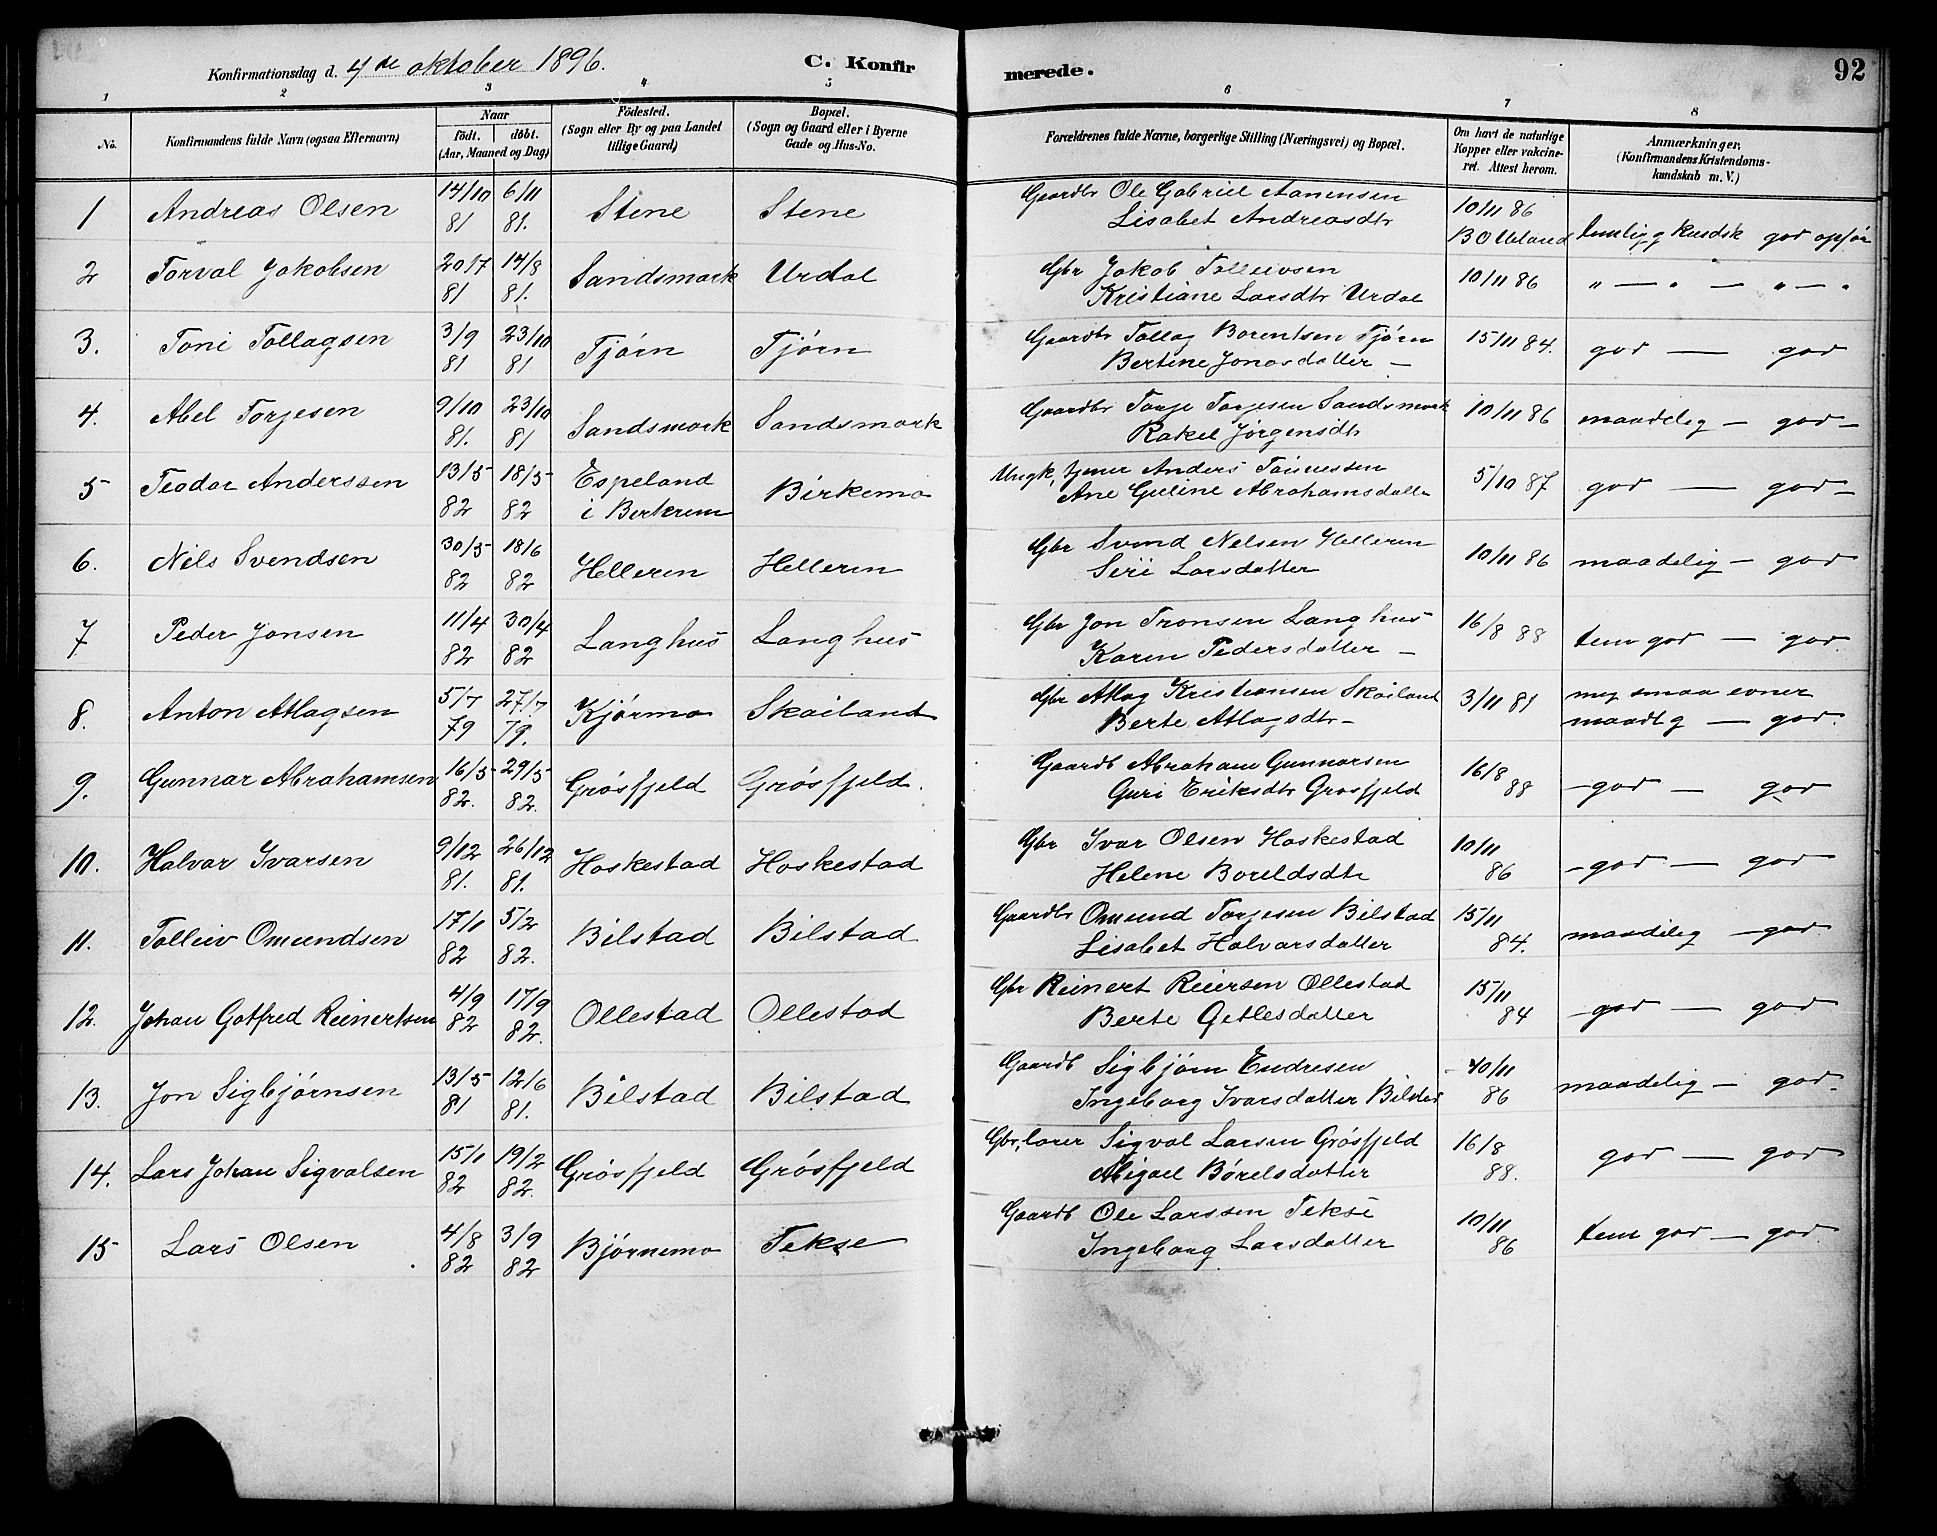 Konfirmationsdag d. 4de oktober 1896. C. Konfirmerede. 92
1 2 3 4 5 6 7 8
No. Konfirmandens fulde Navn (ogsaa Efternavn) Naar födt. döbt. (Aar, Maaned og Dag) Födested. (Sogn eller By og paa Landet tillige Gaard) Bopæl. (Sogn og Gaard eller i Byerne Gade og Hus-No. Forældrenes fulde Navne, borgerlige Stilling (Næringsvei) og Bopæl. Om havt de naturlige Kopper eller vakcineret. Attest herom. Anmærkninger. (Konfirmandens Kristendomskundskab m. V.)
1 Andreas Olsen 14/10 81 6/11 81. Stene Stene Gaardbr Ole Gabriel Aanensen
Lisabet Andreasdtr 10/11 86 B O Ueland temlig g kundsk god opför
2 Torval Jakobsen 20/7 81 14/8 81. Sandsmark Urdal Gbr Jakob Tolleivsen
Kristiane Larsdtr Urdal 10/11 86 " — " — " — "
3. Toni Tollagsen 3/9 81 23/10 81 Tjörn Tjörn Gaardbr Tollag Borentsen Tjörn
Bertine Jonasdatter — 15/11 84. god — god
4. Abel Torjesen 9/10 81. 23/10 81 Sandsmark Sandsmark Gaardbr Torje Torjesen Sandsmark
Rakel Jörgensdtr 10/11 86 maadelig — god —
5 Teodor Anderssen 13/5 82 18/5 82 Espeland i Berkrem Birkemo Ungk, tjener Anders Tönnessen
Ane Guline Abrahamsdatter 5/10 87 god — god —
6. Nils Svendsen 30/5 82 18/6 82 Helleren Helleren Gbr Svend Nelsen Helleren
Siri Larsdatter 10/11 86 maadelig — god
7 Peder Jonsen 11/4 82 30/4 82 Langhus Langhus Gbr Jon Tronsen Langhus
Karen Pedersdatter — 16/8 88 tem god — god.
8. Anton Atlagsen 5/7 79 27/7 79. Kjörmo Skailand Gbr Atlag Kristiansen Skailand
Berte Atlagsdtr — 3/11 81 meg smaa evner
maadlg — god.
9. Gunnar Abrahamsen 16/5 82. 29/5 82. Grösfjeld Grösfjeld. Gaardb Abraham Gunnarsen
Guri Eriksdtr Grosfjeld 16/8 88 — god — god
10. Halvar Ivarsen 9/12 81. 26/12 81. Hoskestad Hoskestad Gbr Ivar Olsen Hoskestad
Helene Boreldsdtr 10/11 86 — god — god
11. Tolleiv Omundsen 17/1 82 5/2 82. Bilstad Bilstad Gaardbr Omund Torjesen Bilstad
Lisabet Halvarsdatter 15/11 84. maadelig — god
12. Johan Gotfred Reinertsen 4/9 82 17/9 82. Ollestad Ollestad Gbr Reinert Reiersen Ollestad
Berte Getlesdatter 15/11 84 — god — god
13. Jon Sigbjörnsen 13/5 81 12/6 81. Bilstad Bilstad Gaardb Sigbjörn Endresen
Ingeborg Ivarsdatter Bilstad 10/11 86 maadelig — god —
14. Lars Johan Sigvalsen 15/1 82 19/2 82. Grösfjeld Grösfjeld Gbr, lærer Sigval Larsen Grösfjeld
Abigael Börelsdatter 16/8 88. god — god
15 Lars Olsen 4/8 82 3/9 82 Bjørnemo Tekse Gaardb Ole Larssen Tekse
Ingeborg Larsdatter 10/11 86 tem god — god.